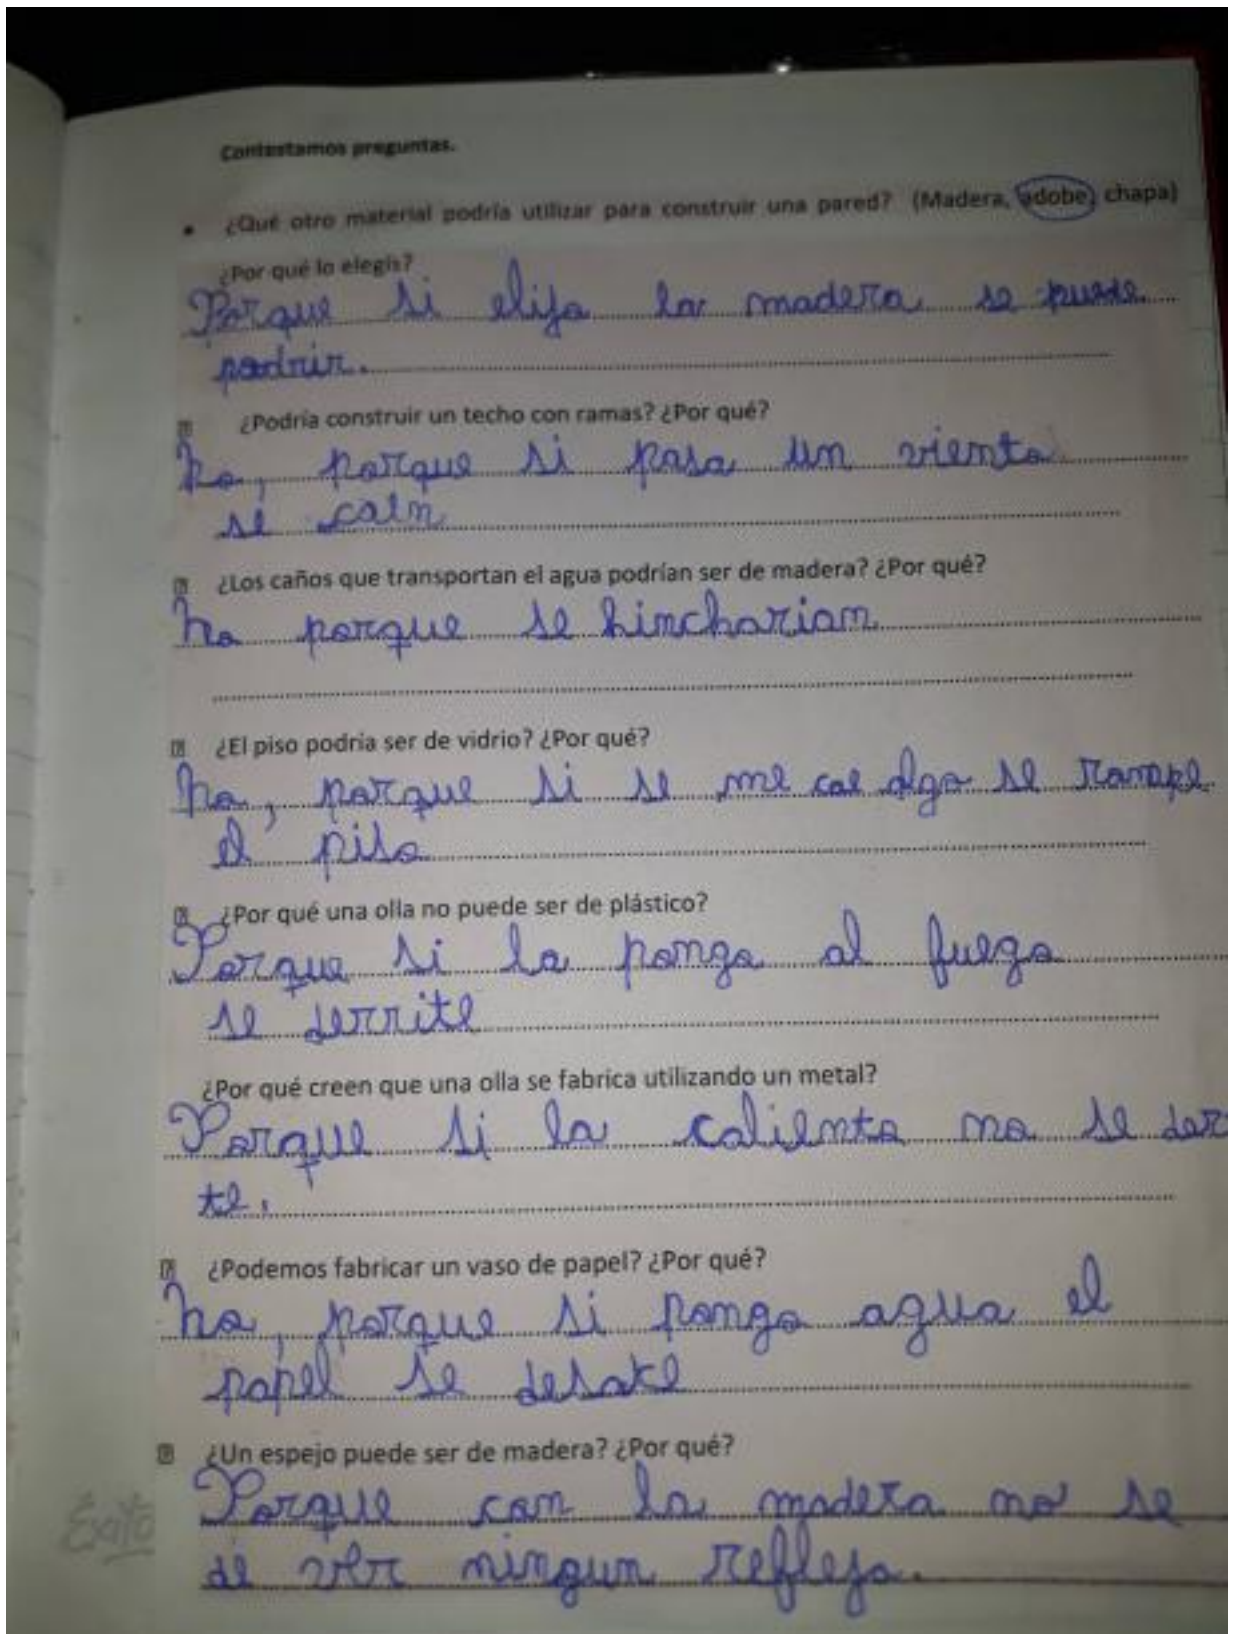 Contestamos preguntas.
• ¿Qué otro material podría utilizar para construir una pared? (Madera, adobe, chapa)
¿Por qué lo elegís?
Porque si elijo la madera se puede
podrir.
¿Podría construir un techo con ramas? ¿Por qué?
no, porque si pasa un viento
se caen
¿Los caños que transportan el agua podrían ser de madera? ¿Por qué?
no porque se hincharian
¿El piso podría ser de vidrio? ¿Por qué?
no, porque si se me cae algo se rompe
el piso
¿Por qué una olla no puede ser de plástico?
Porque si la pongo al fuego
se derrite
¿Por qué creen que una olla se fabrica utilizando un metal?
Porque si la caliento no se der
te.
¿Podemos fabricar un vaso de papel? ¿Por qué?
no, porque si pongo agua el
papel se desase
¿Un espejo puede ser de madera? ¿Por qué?
Porque con la madera no se
de ver ningun reflejo.
Éxito